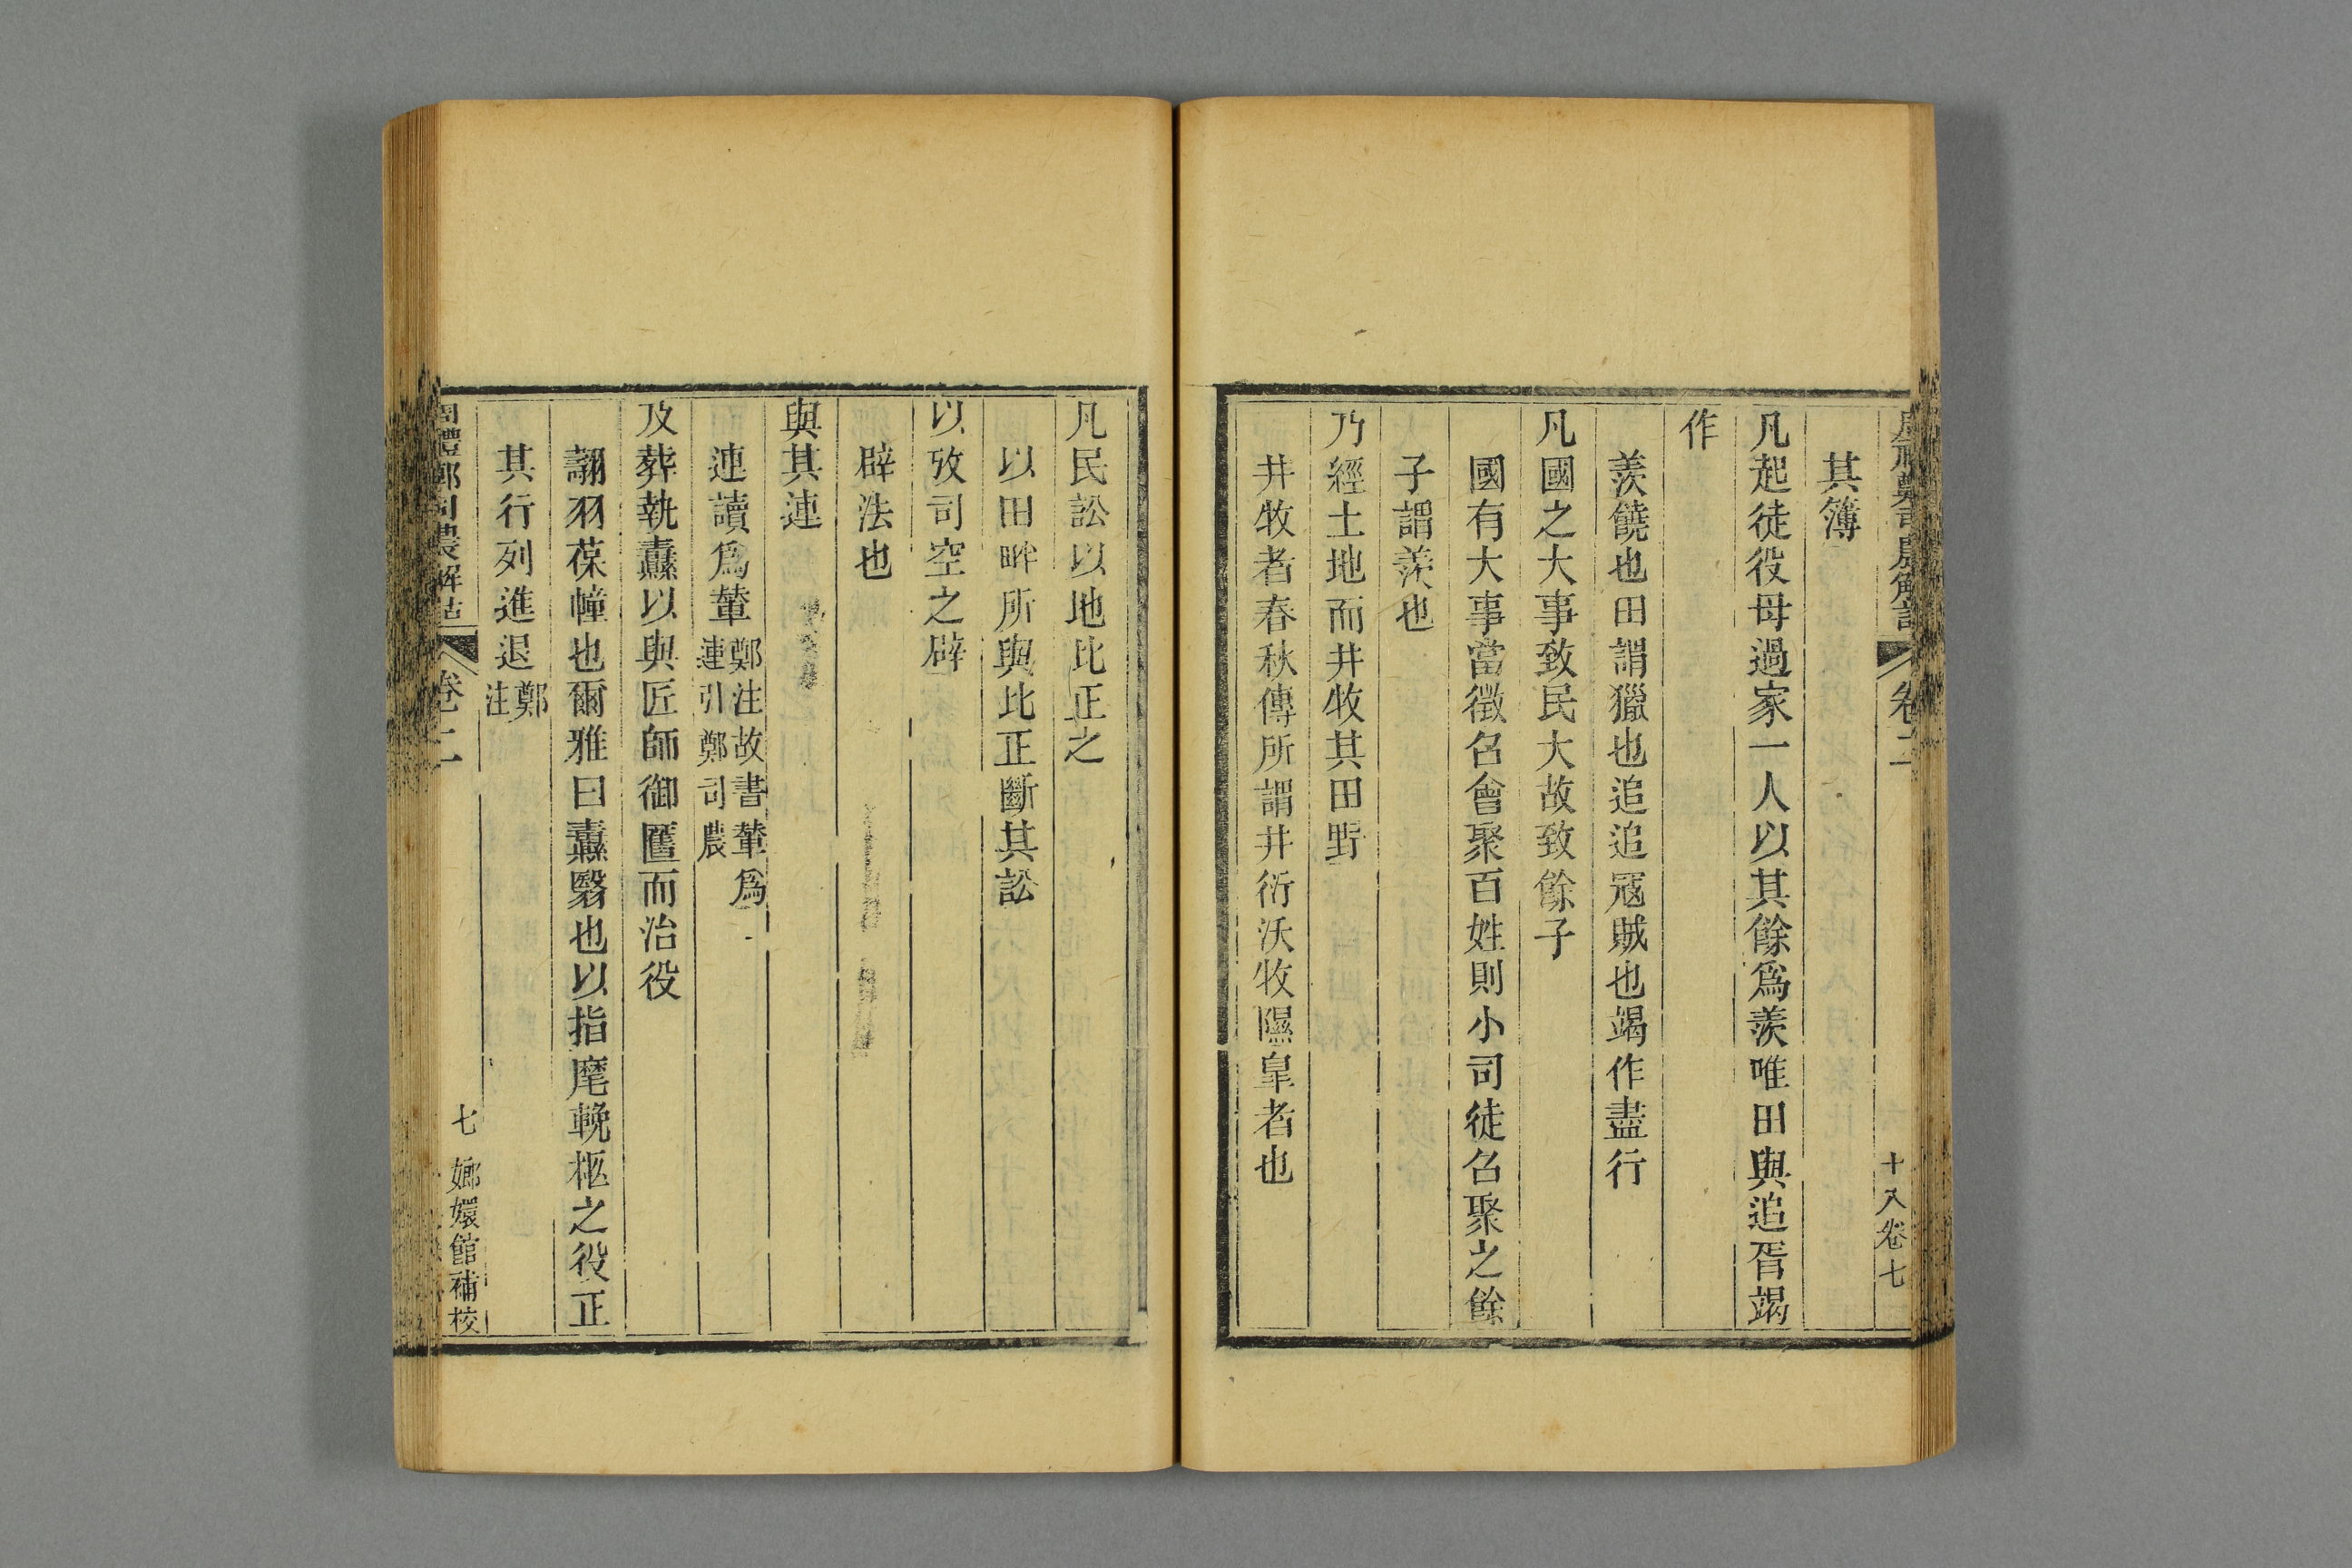 周禮鄭司農解詁 卷二 十八卷七
其簿
凡起徒役毋過家一人以其餘爲羨唯田與追胥竭
作
羨饒也田謂獵也追追寇賊也竭作盡行
凡國之大事致民大故致餘子
國有大事當徵召會聚百姓則小司徒召聚之餘
子謂羨也
乃經土地而井牧其田野
井牧者春秋傳所謂井衍沃牧隰皐者也
凡民訟以地比正之
以田畔所與比正斷其訟
以攷司空之辟
辟法也
與其連
連讀爲輦鄭注故書輦爲
連引鄭司農
及葬執纛以與匠師御匶而治役
翿羽葆幢也爾雅曰纛翳也以指麾輓柩之役正
其行列進退鄭
注
周禮鄭司農解詁 卷二 七 嫏嬛館補校